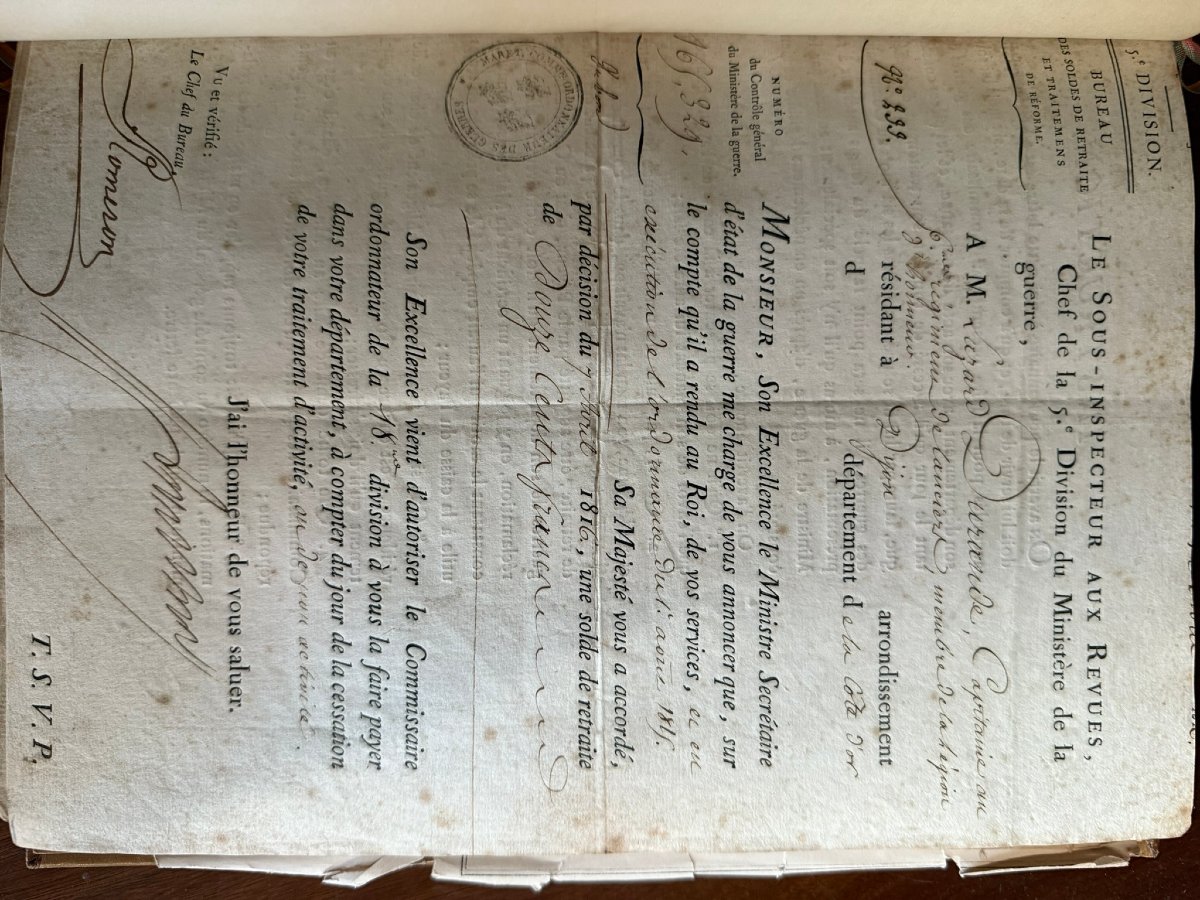 5.e DIVISION.
BUREAU
DES SOLDES DE RETRAITE
ET TRAITEMENS
DE RÉFORME.
N.º 239.
NUMÉRO
du Contrôle général
du Ministère de la guerre.
LE SOUS-INSPECTEUR AUX REVUES,
Chef de la 5.e Division du Ministère de la
guerre,
A M. Lazard Durande, Capitaine au
régiment de membre de la Légion
d'honneur.
résidant à Dijon arrondissement
d département de la Côte d'or
MONSIEUR, Son Excellence le Ministre Secrétaire
d'état de la guerre me charge de vous annoncer que, sur
le compte qu'il a rendu au Roi, de vos services, et en
exécution de l'ordonnance du 1 août 1815.
Sa Majesté vous a accordé,
par décision du 7 Août 1816, une solde de retraite
de Douze Cents francs
Son Excellence vient d'autoriser le Commissaire
ordonnateur de la 18me division à vous la faire payer
dans votre département, à compter du jour de la cessation
de votre traitement d'activité,
J'ai l'honneur de vous saluer.
Vu et vérifié :
Le Chef du Bureau,
T. S. V. P.